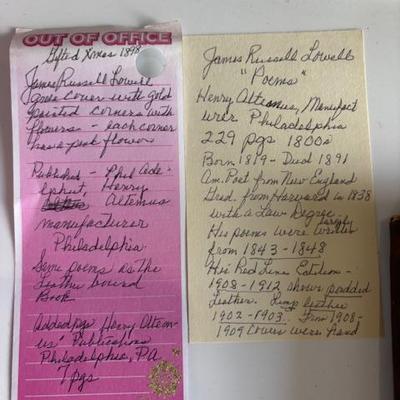 OUT OF OFFICE
Gifted Xmas 1898
James Russell Lowell
cover with gold
painted corners with
flowers - each corner
has a pink flower
Published - Philade-
lphia, Henry
Altemus
manufacturer
Philadelphia
Same poems as the
leather bound
Book
Added pgs Henry Altem-
us' Publications
Philadelphia, PA
7 pgs
James Russell Lowell
"Poems"
Henry Altemus, Manufact
urer Philadelphia
229 pgs 1800s
Born 1819 - Died 1891
Am. Poet from New England
Grad. from Harvard in 1838
with a Law Degree
His poems were largely written
from 1843 - 1848
His Red Line Edition -
1908 - 1912 shows padded
leather. Limp leather
1902 - 1903. From 1908 -
1909 Covers were hand